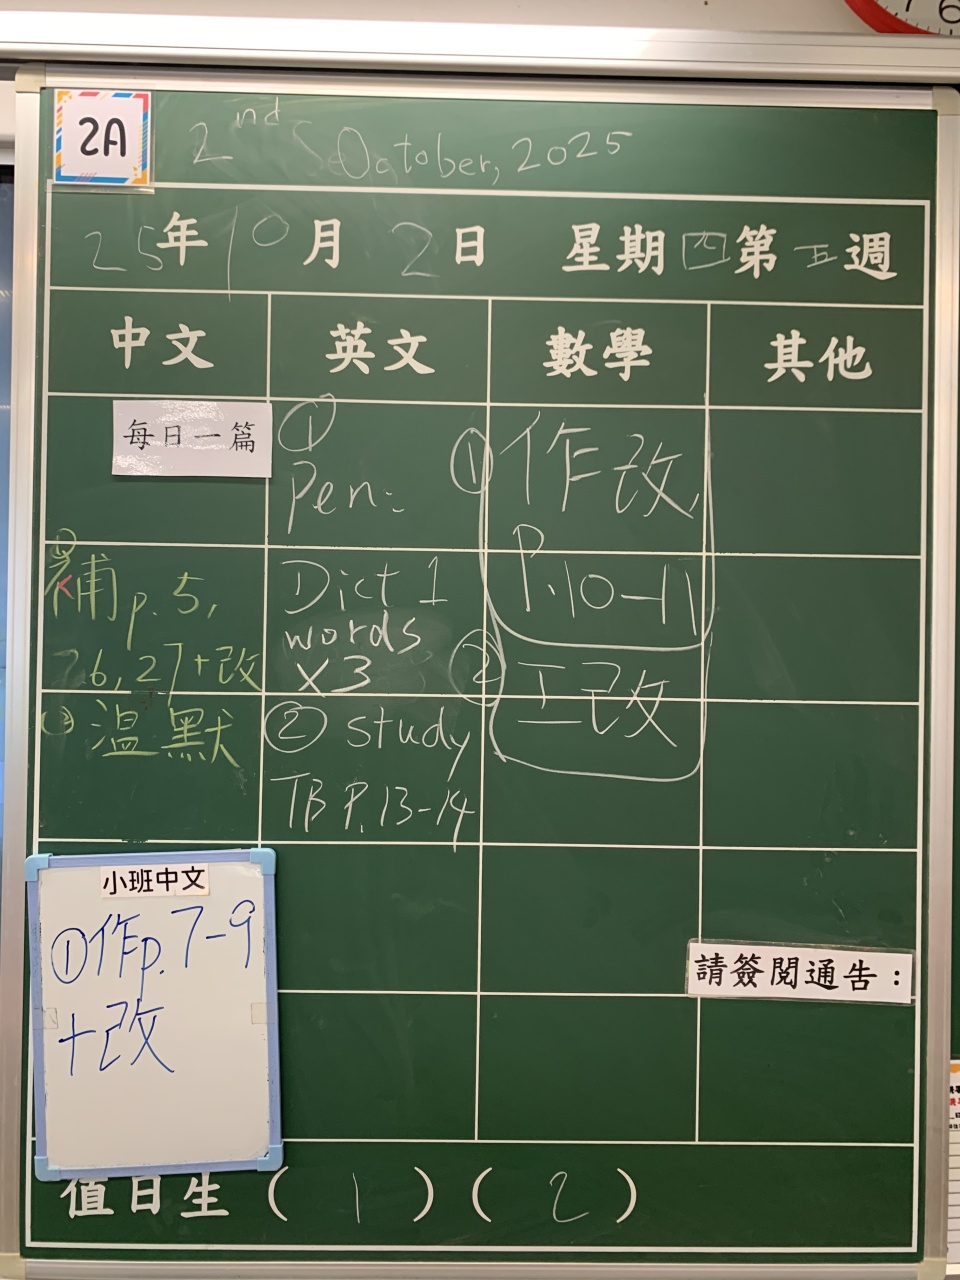 2A
2nd October, 2025
25年10月2日 星期四第五週
中文 英文 數學 其他
每日一篇
補p.5,
26,27+改
溫默
① Pen:
Dict 1
words
X3
② study
TB P.13-14
① 作改
P.10-11
② 工改
小班中文
①作p.7-9
+改
請簽閱通告：
值日生（1）（2）